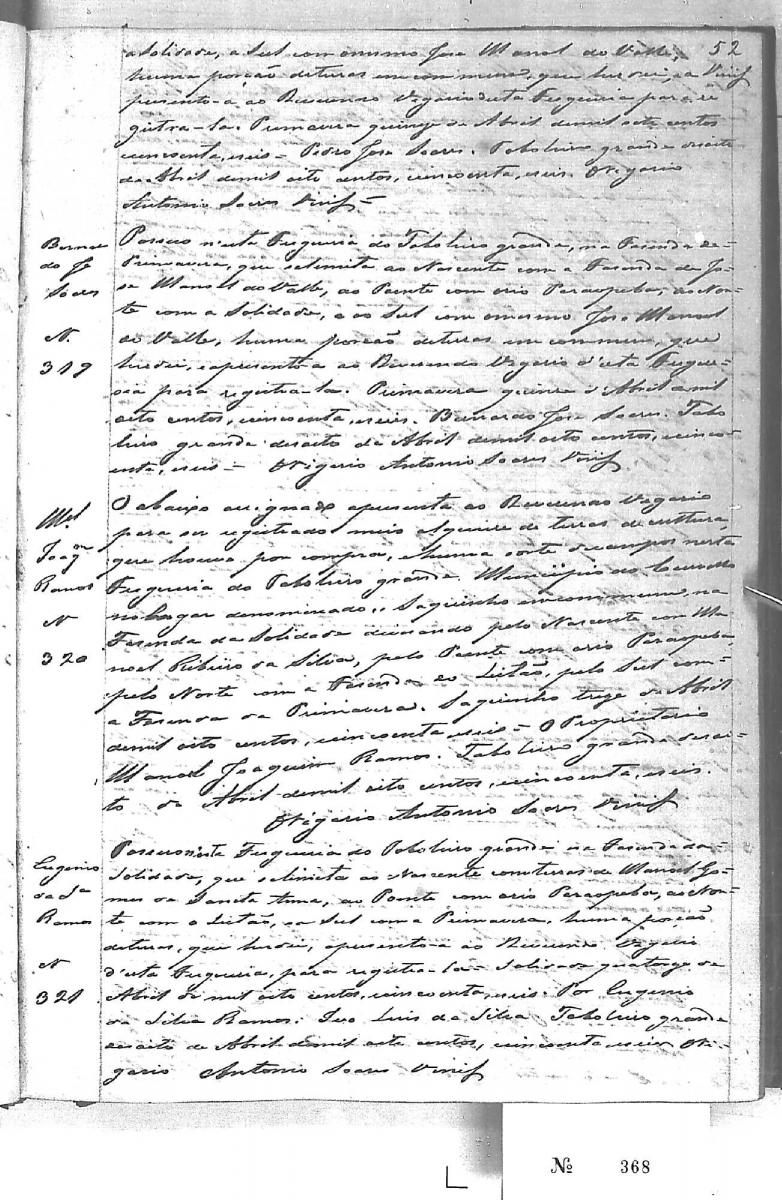 52
a Solidade, a Sul com o mesmo Jose Manoel do Valle,
huma porção de terras em commum, que herdei, e a
presento-a ao Reverendo Vegario desta Freguesia para re
gistra-la. Primavera quinze de Abril de mil oito centos
cincoenta, e seis = Pedro Jose Soares. Taboleiro grande desoito
de Abril de mil oito centos, cincoenta, e seis. O Vegario
Antonio Soares
Bernar
do Je
Soares
N.
319
Possuo n'esta Freguesia do Taboleiro grande, na Fasenda da =
Primavera, que se limita ao Nascente com a Fasenda de Jo=
se Manoel do Valle, ao Poente com o rio Paraopeba, ao Nor=
te com a Solidade, e ao Sul com o mesmo Jose Manoel
do Valle, huma porção de terras em commum, que
herdei, e apresento-a ao Reverendo Vegario d'esta Fregue=
sia para registra-la. Primavera quinze d'Abril de mil
oito centos, cincoenta, e seis. Bernardo Jose Soares. Tabo
leiro grande desoito de Abril de mil oito centos, cinco=
enta, e seis = O Vegario Antonio Soares
Mel
Joaqm
Ramos
N
320
O abaixo assignado apresenta ao Reverendo Vegario
para ser registrado meio alqueire de terras de cultura,
que houve por compra, e huma sorte de campos nesta
Freguesia do Taboleiro grande. Municipio do Curvello
no lugar denominado = Saquinho em commum, na
Fasenda da Solidade devisando pelo Nascente com Ma
noel Ribeiro da Silva, pelo Poente com o rio Paraopeba,
pelo Norte com a Fasenda do Leitão, pelo Sul com =
a Fasenda da Primavera. Saquinho treze de Abril
de mil oito centos, cincoenta, e seis = O Proprietario
Manoel Joaquim Ramos. Taboleiro grande desoi=
to de Abril de mil oito centos, cincoenta, e seis.
O Vegario Antonio Soares
Eugenio
da Sa
Ramos
N
321
Possuo nesta Freguesia do Taboleiro grande na Fasenda da =
Solidade, que se limita ao Nascente com terras de Manoel Go=
mes da Santa Anna, ao Poente com o rio Paraopeba, ao Nor=
te com o Leitão, ao Sul com a Primavera, huma porção
de terras, que herdei, apresento-a ao Reverendo Vegario
d'esta Freguesia, para registra-la = Solidade quatorze de
Abril de mil oito centos, cincoenta, e seis. Por Eugenio
da Silva Ramos. Luis da Silva Taboleiro grande
desoito de Abril de mil oito centos, cincoenta e seis O Ve=
gario Antonio Soares
№ 368